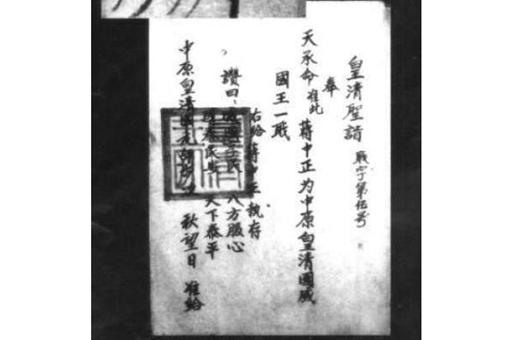 皇清聖 戰字第伍号
奉
天承命准此 蔣中正为中原皇清國威
國王一戰
右給蔣中正執存
讚曰 八方服心
天下泰平
中原皇清 秋望日 准給